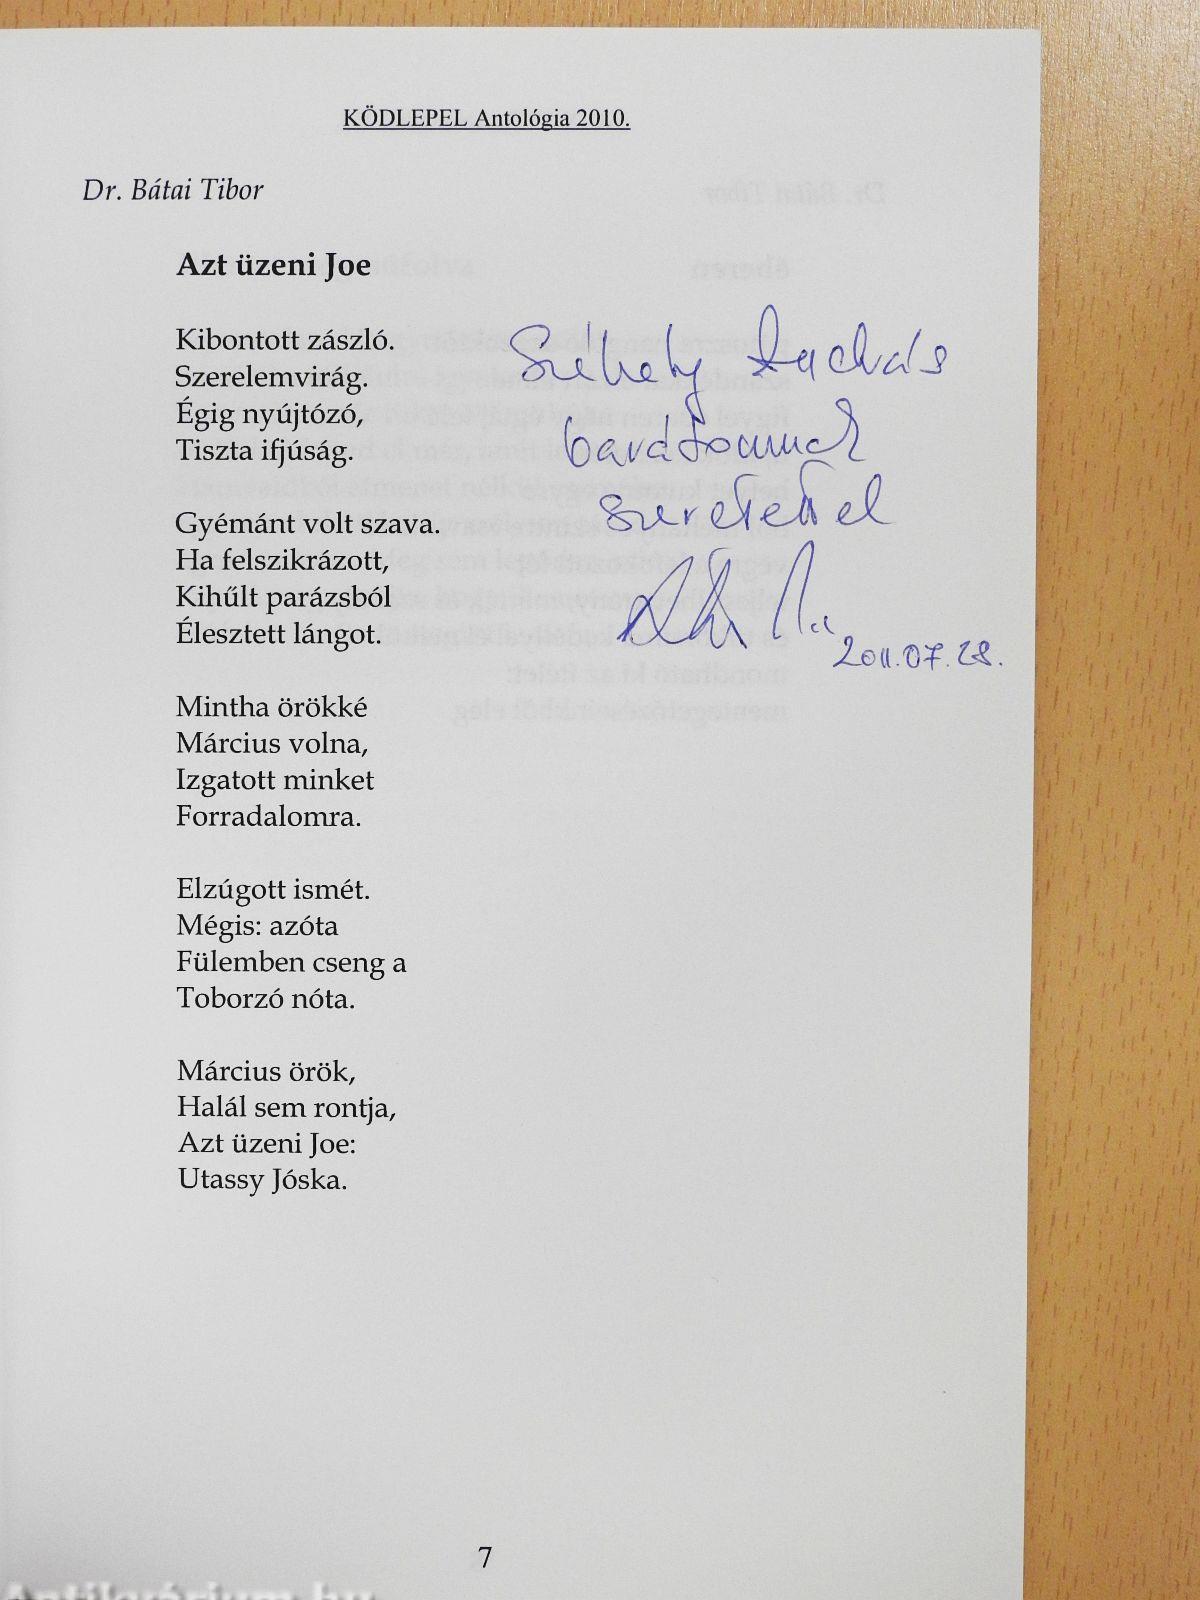 KÖDLEPEL Antológia 2010.
Dr. Bátai Tibor
Azt üzeni Joe
Kibontott zászló.
Szerelemvirág.
Égig nyújtózó,
Tiszta ifjúság.
Gyémánt volt szava.
Ha felszikrázott,
Kihűlt parázsból
Élesztett lángot.
Mintha örökké
Március volna,
Izgatott minket
Forradalomra.
Elzúgott ismét.
Mégis: azóta
Fülemben cseng a
Toborzó nóta.
Március örök,
Halál sem rontja,
Azt üzeni Joe:
Utassy Jóska.
Székely András
barátomnak
szeretettel
2011.07.28.
7
Antikvárium.hu